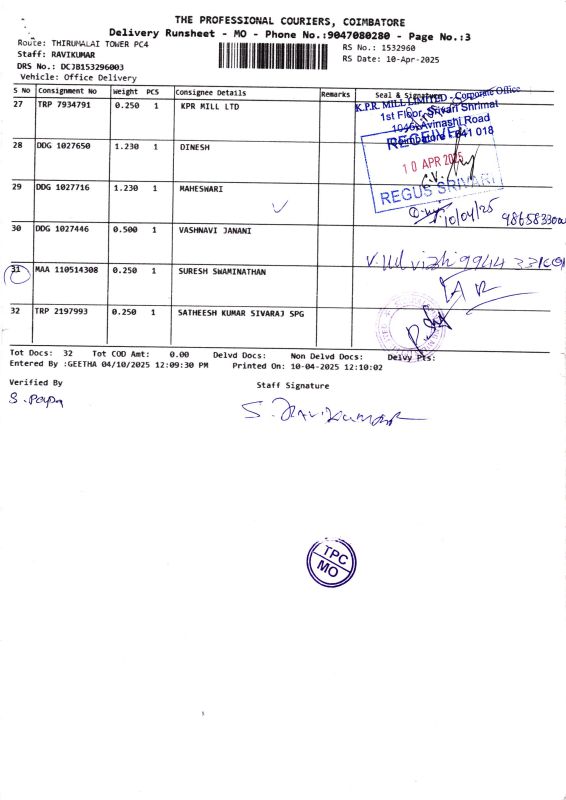 THE PROFESSIONAL COURIERS, COIMBATORE
Delivery Runsheet - MO - Phone No.:9047080280 - Page No.:3
Route: THIRUMALAI TOWER PC4
Staff: RAVIKUMAR
DRS No.: DCJB153296003
Vehicle: Office Delivery
RS No.: 1532960
RS Date: 10-Apr-2025
S No Consignment No Weight PCS Consignee Details Remarks Seal & Signature
27 TRP 7934791 0.250 1 KPR MILL LTD
K.P.R. MILL LIMITED - Corporate Office
1st Floor, Srivari Shrimat
1046, Avinashi Road
Coimbatore - 641 018
RECEIVED
10 APR 2025
REGUS SRIVARI
28 DDG 1027650 1.230 1 DINESH
29 DDG 1027716 1.230 1 MAHESWARI
10/04/25
30 DDG 1027446 0.500 1 VASHNAVI JANANI
31 MAA 110514308 0.250 1 SURESH SWAMINATHAN
32 TRP 2197993 0.250 1 SATHEESH KUMAR SIVARAJ SPG
Tot Docs: 32 Tot COD Amt: 0.00 Delvd Docs: Non Delvd Docs: Delvy Pts:
Entered By :GEETHA 04/10/2025 12:09:30 PM Printed On: 10-04-2025 12:10:02
Verified By
Staff Signature
S. Ravikumar
TPC
MO